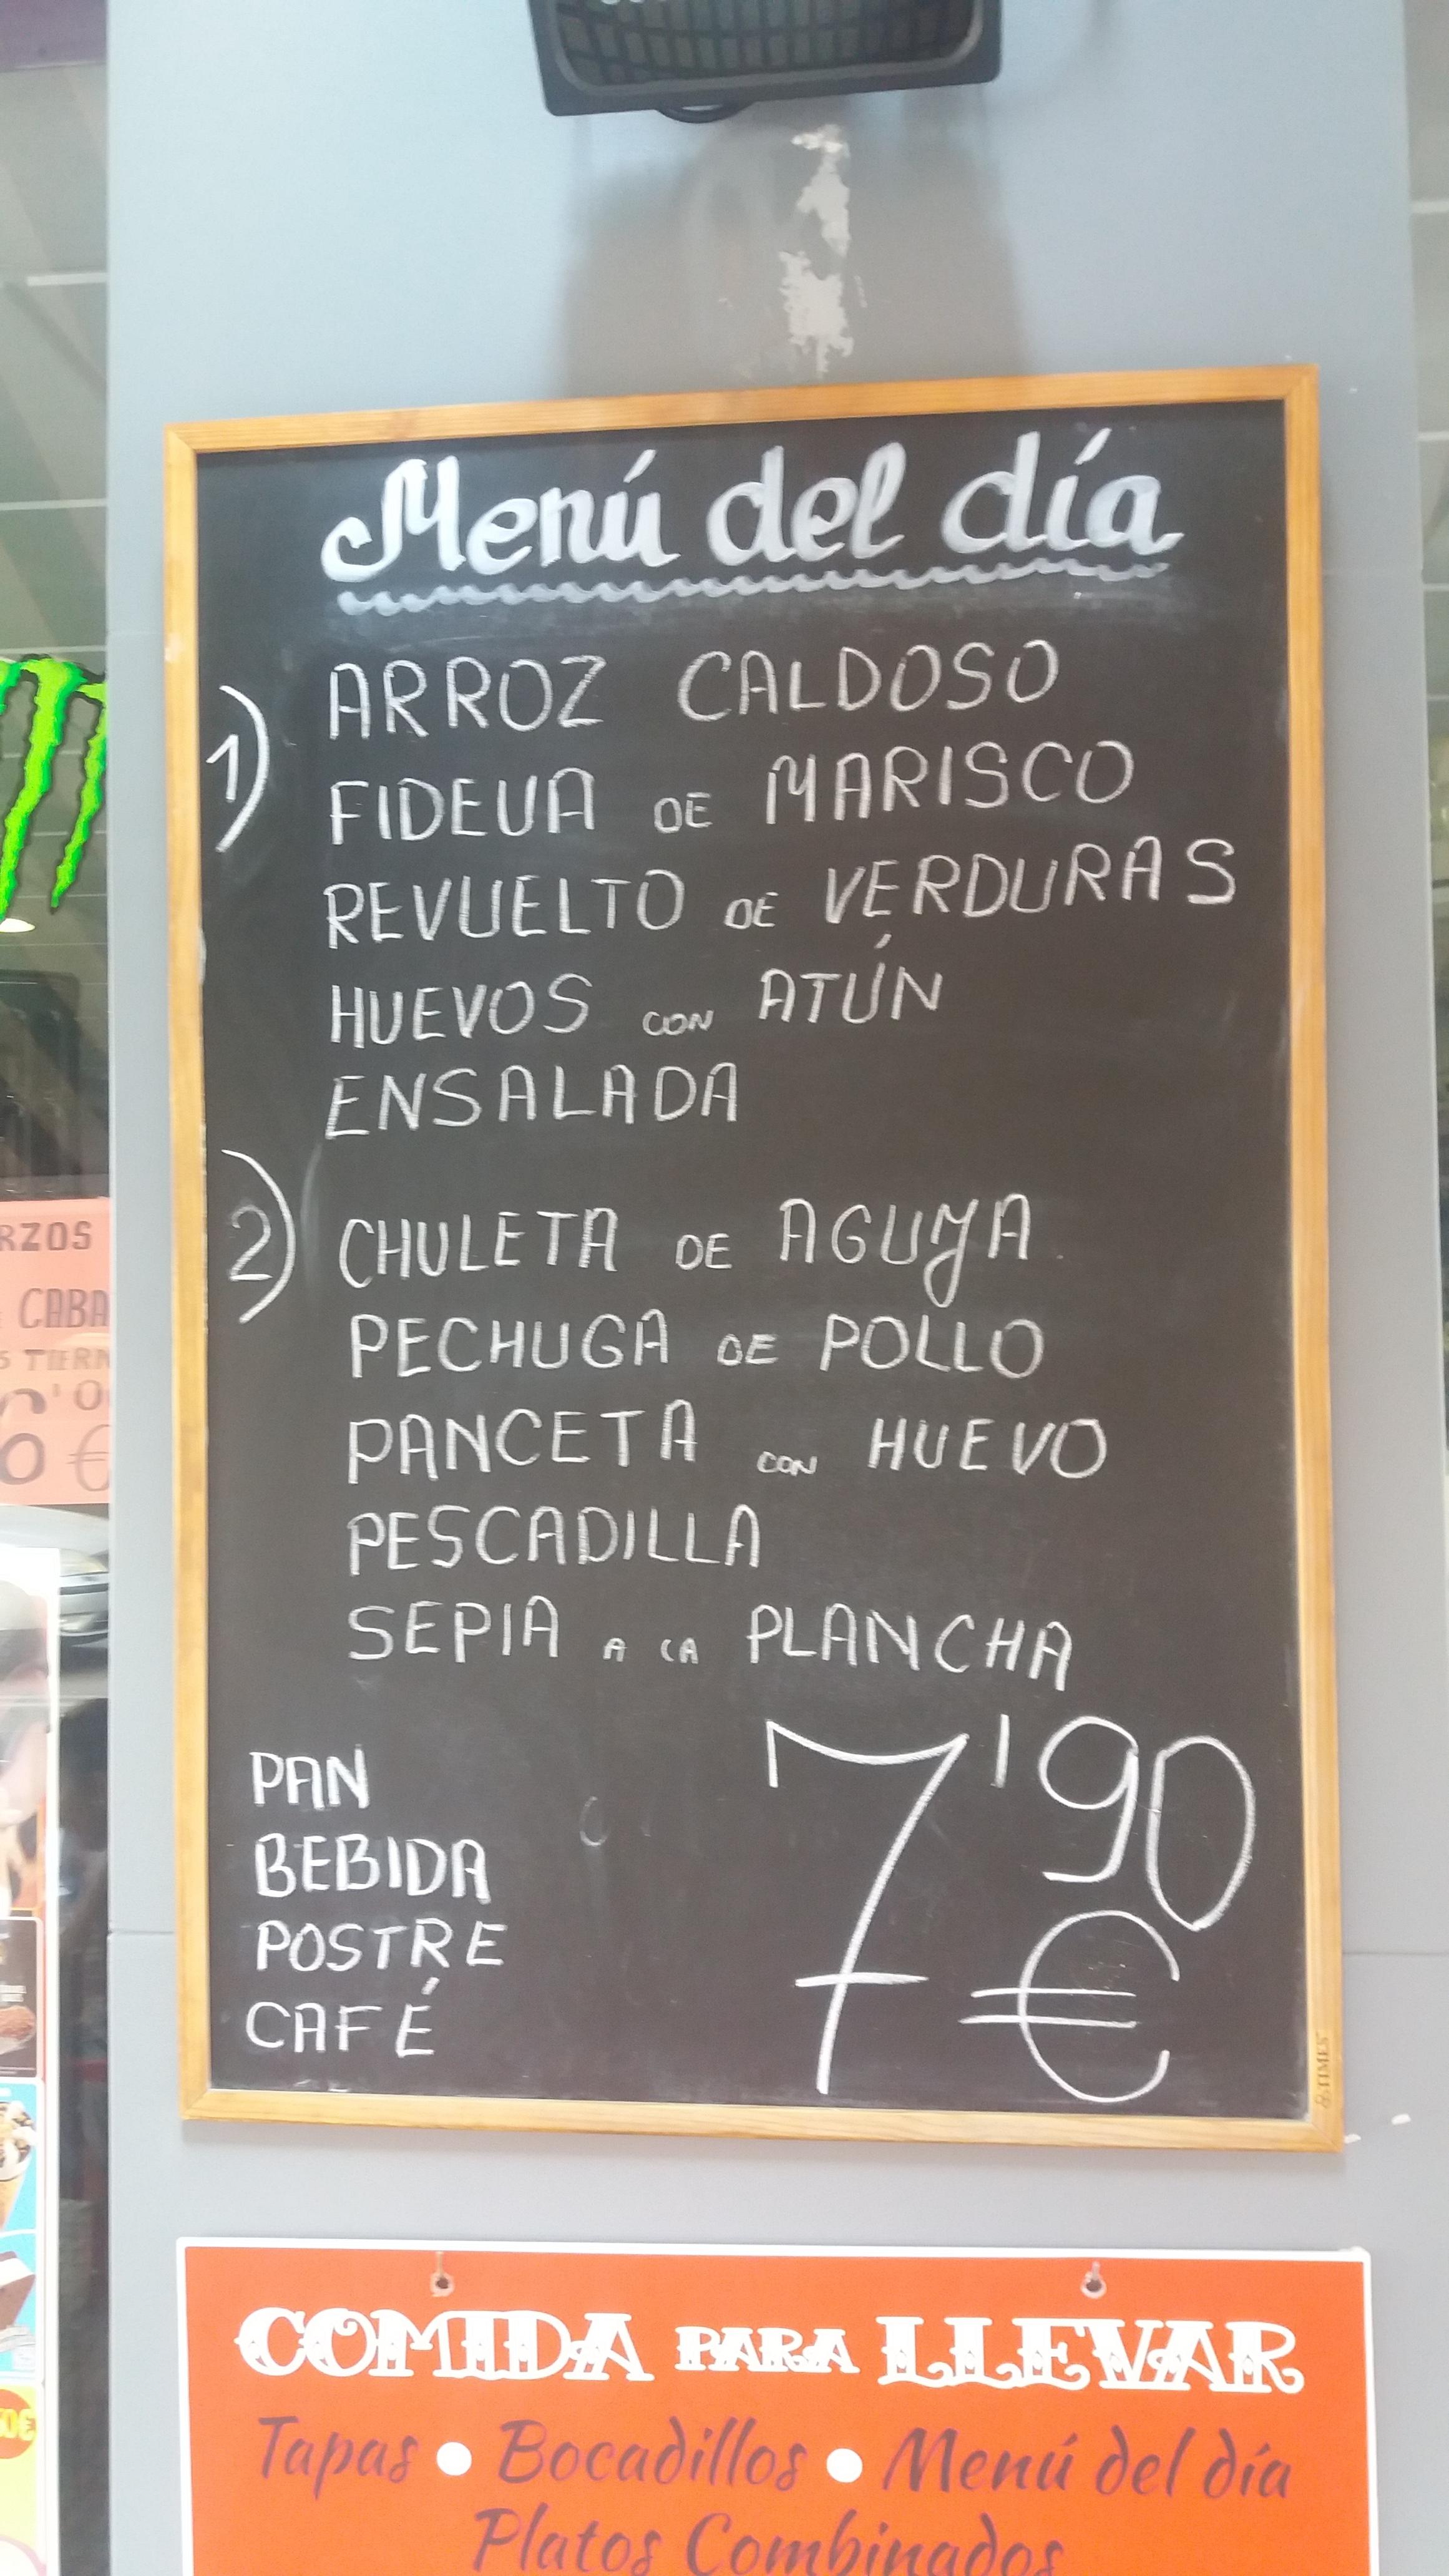 Menú del día
1) ARROZ CALDOSO
FIDEUA DE MARISCO
REVUELTO DE VERDURAS
HUEVOS CON ATÚN
ENSALADA
2) CHULETA DE AGUYA
PECHUGA DE POLLO
PANCETA CON HUEVO
PESCADILLA
SEPIA A LA PLANCHA
PAN
BEBIDA
POSTRE
CAFÉ
7'90
€
RZOS
CABA
S TIERN
6'0
€
COMIDA PARA LLEVAR
Tapas • Bocadillos • Menú del día
Platos Combinados